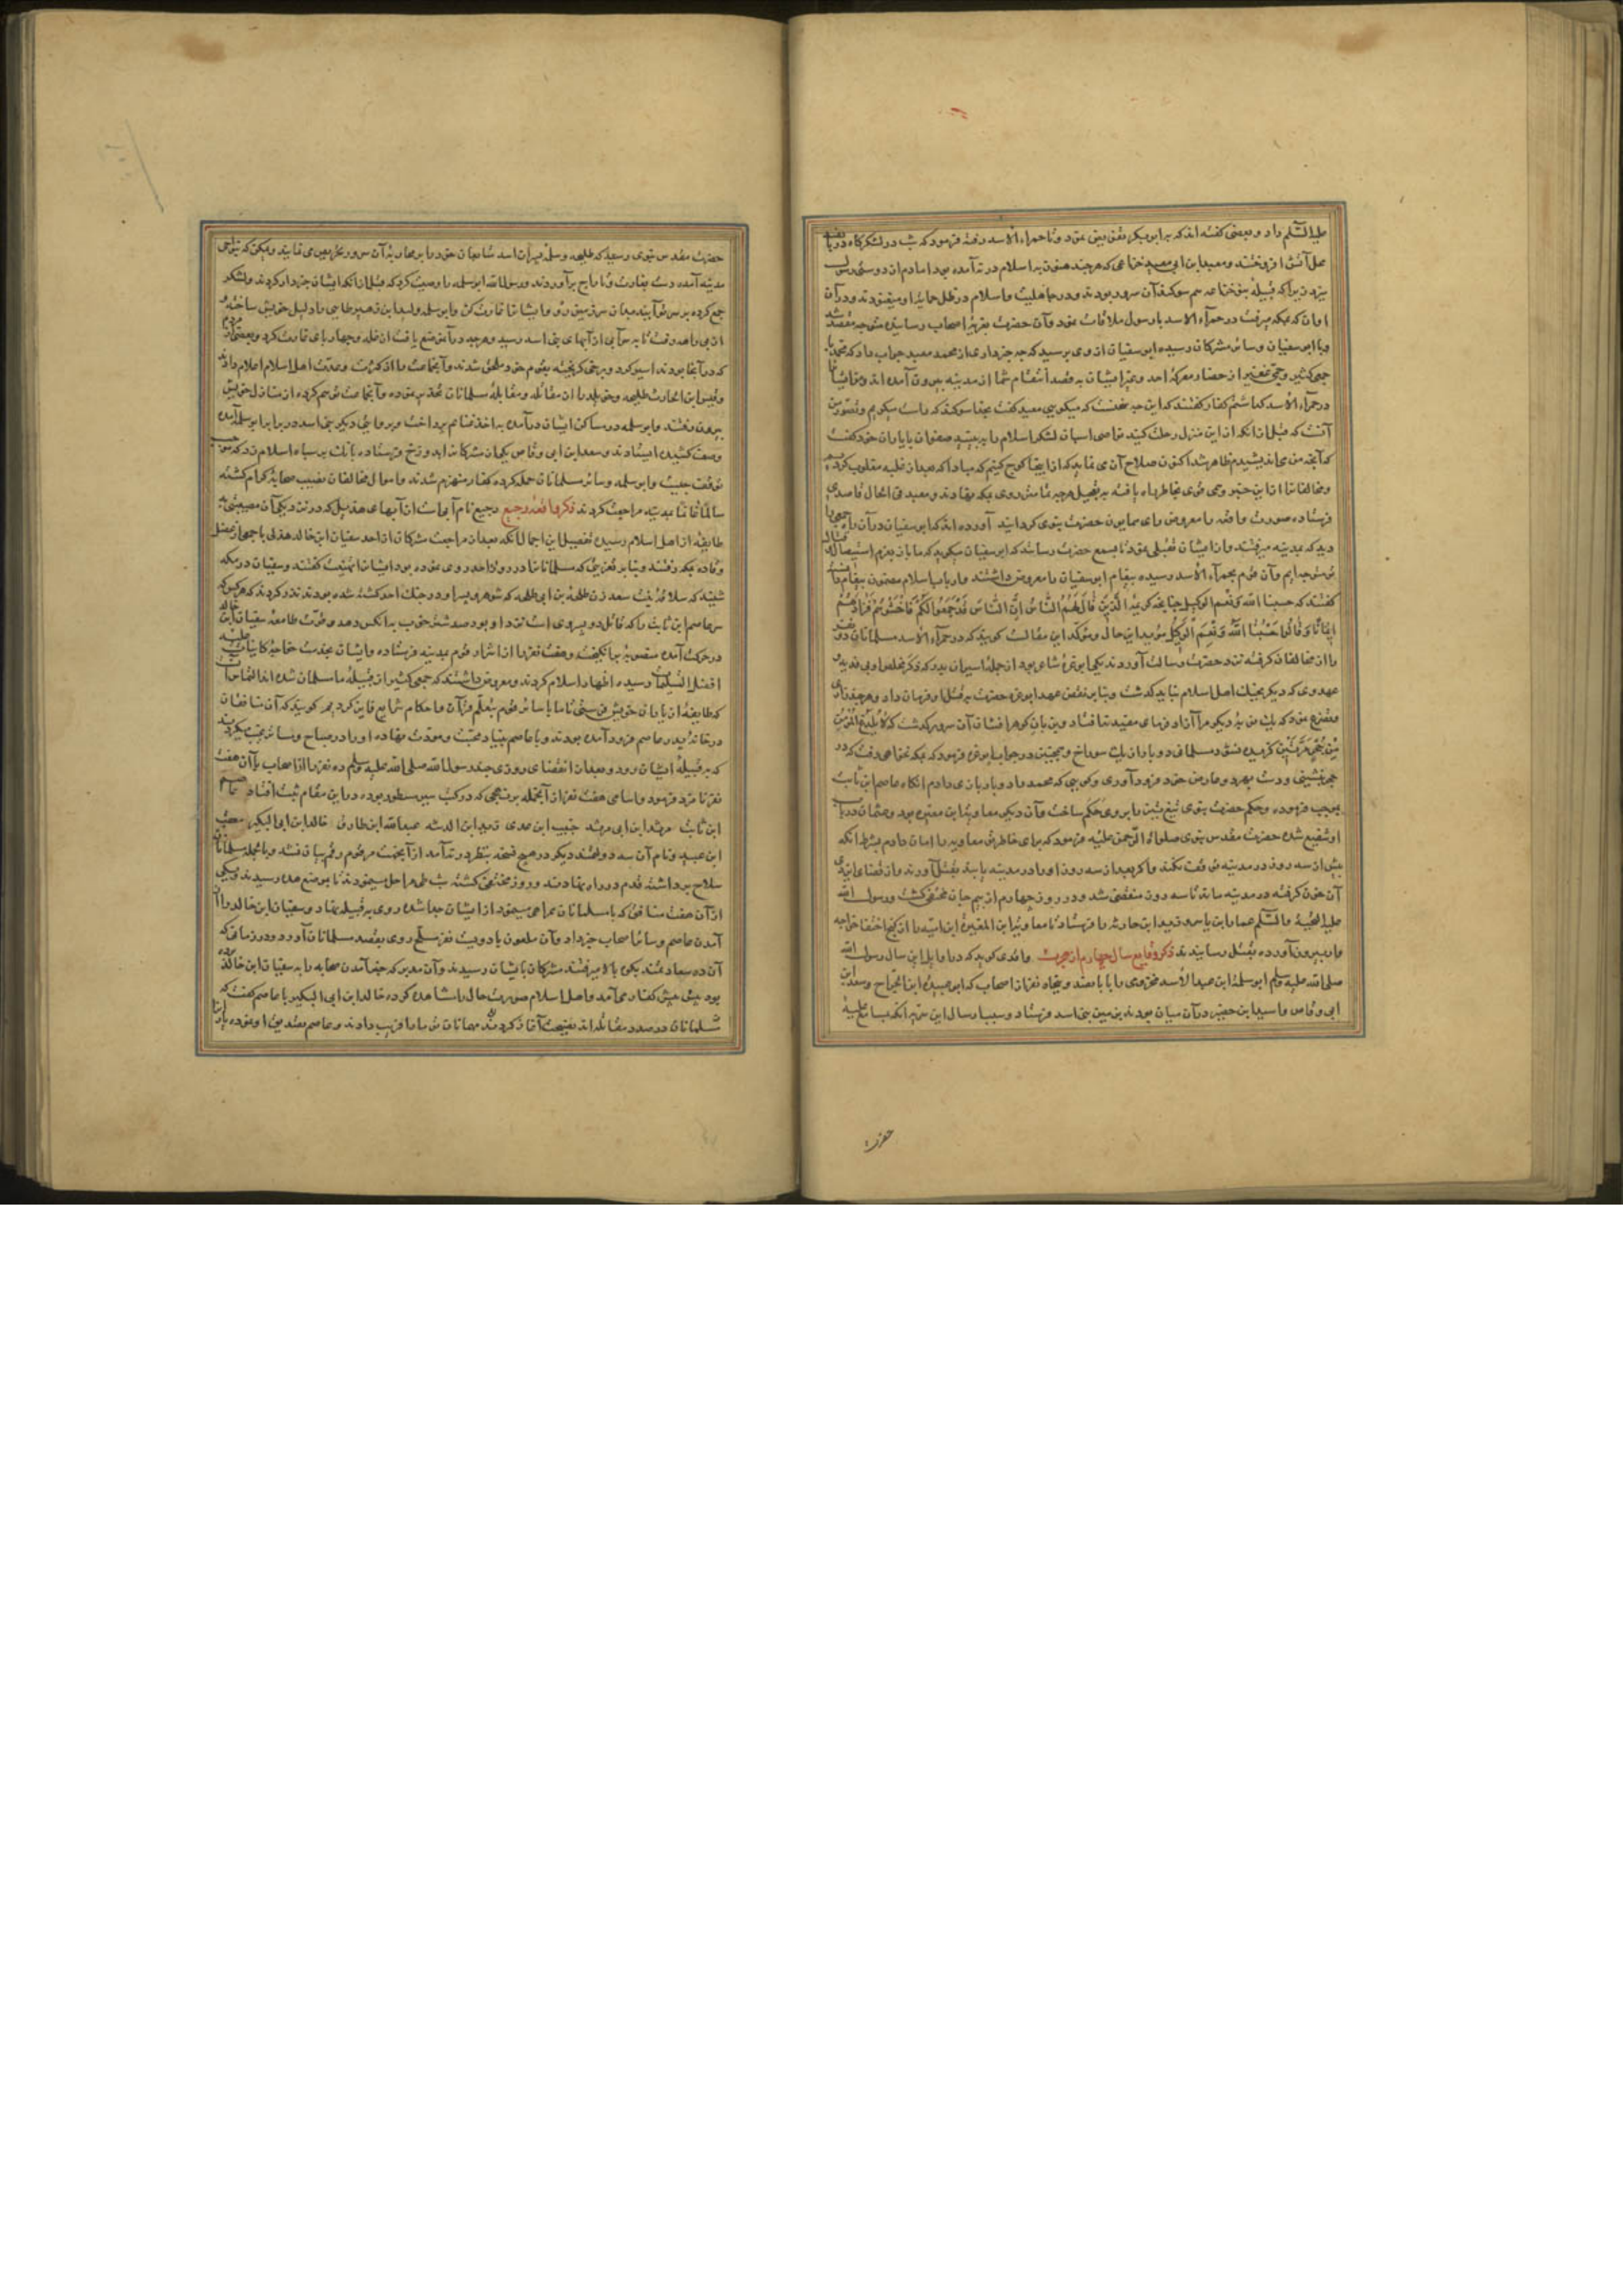 علیه السّلم داد و بعضی گفته اند که به ابو بکر تفویض نمود و تا حمراء الاسد رفته فرمود که شب در لشکرگاه
محل آتش افروختند و معبد ابن ابی معبد خزاعی که هر چند هنوز به اسلام در نیامده بود اما دم از دوستی رسول
میزد زیرا که قبیله بنو خزاعه هم سوکند آن سرور بودند و در جاهلیت و اسلام در ظل حمایة او میغنودند و در آن
اوان که بمکه میرفت در حمراء الاسد با رسول ملاقات نمود و آن حضرت بتعزیة اصحاب رسانیده متوجه مقصد شد
و با ابو سفیان و سائر مشرکان رسیده ابو سفیان از وی پرسید که چه خبر داری از محمد معبد جواب داد که محمد با
جمعی کثیر و جمعی غفیر از حضار معرکۀ احد و غیر ایشان به قصد انتقام شما از مدینه بیرون آمده اند
در حمراء الاسد گذاشتم کفار گفتند که این چه سخنست که میگویی معبد گفت بخدا سوکند که راست میگویم و تصور من
آنست که قبل از آنکه از این منزل رحلت کنید نواصی اسپان لشکر اسلام را به بینید صفوان با یاران خود گفت
که آنچه من می اندیشیدم ظاهر شد اکنون صلاح آن می نماید که از اینجا کوچ کنیم که مبادا که بعد از غلبه مغلوب کردیم
و مخالفان را از این خبر رعبی قوی بخاطر راه یافته به تعجیل هر چه تمامتر روی بمکه نهادند و معبد فی الحال قاصدی
فرستاده صورت واقعه را معروض رای همایون حضرت نبوی کردانید آورده اند که ابو سفیان در آن راه جمعی را
دید که بمدینه میرفتند و از ایشان تقبلی نمود تا بسمع حضرت رسانند که ابو سفیان میگوید که ما باز بعزم استیصال
متوجه ایم و آن قوم بحمراء الاسد رسیده پیغام ابو سفیان را معروض داشتند و ارباب اسلام
گفتند که حسبنا الله و نعم الوکیل چنانچه کریمۀ الَّذِینَ قَالَ لَهُمُ النَّاسُ اِنَّ النَّاسَ قَدْ جَمَعُوا لَکُمْ فَاخْشَوْهُمْ فَزَادَهُمْ
اِیمَانًا وَ قَالُوا حَسْبُنَا اللّٰهُ وَ نِعْمَ الْوَکِیلُ مؤید این حال و مؤکد این مقالست کویند که در حمراء الاسد مسلمانان دو نفر
را از مخالفان کرفته نزد حضرت رسالت آوردند یکی ابو عزۀ شاعر بود از جملۀ اسیران بدر که
عهدی که دیگر بجنک اهل اسلام نیاید کذشت و بنابر نقض عهد ابو عزه حضرت به قتل او فرمان داد و هر چند
و تضرع نمود که یک مرتبۀ دیگر مرا آزاد فرمای مفید نیافتاد و بر زبان کوهر افشان آن سرور کذشت که لَا یُلْدَغُ الْمُؤْمِنُ
مِنْ جُحْرٍ مَرَّتَیْنِ کزیده نشود مسلمانی دو بار از یک سوراخ و همچنین در جواب ابو عزه فرمود که بمکه نخواهی رفت که در
حجر نشینی و دست بهر دو عارض خود فرود آوری و کویی که محمد را دو بار بازی دادم انکاه عاصم ابن ثابت
بموجب فرموده و حکم حضرت نبوی تیغ تیز را بر وی حکم ساخت و آن دیگری معاویة ابن مغیره بود و عثمان در باب
او شفیع شده حضرت مقدس نبوی صلوات الرحمن علیه فرمود که برای خاطر تو معاویه را امان دادم بشرط آنکه
بیش از سه روز در مدینه توقف نکند و اکر بعد از سه روز او را در مدینه یابند بقتل آورند و از قضای ایزدی
آن خون کرفته در مدینه ماند تا سه روز منقضی شد و در روز چهارم از بیم جان مختفی کشت و رسول الله
علیه التحیة و السّلم عمار ابن یاسر و زید ابن حارثه را فرستاد تا معاویة ابن المغیرة ابن امیه را از کنج اختفا
بیرون آورده بقتل رسانیدند ذکر وقایع سال چهارم از هجرت واقدی کوید که در اوایل این سال رسول الله
صلی الله علیه وسلم ابو سلمة ابن عبد الاسد مخزومی را با یکصد و پنجاه نفر از اصحاب که ابو عبیدة ابن الجراح و سعد ابن
ابی وقاص و اسید ابن حضیر در آن میان بودند بزمین بنی اسد فرستاد و سبب ارسال این سریه آنکه بمسامع علیۀ
حضرت
حضرت مقدس نبوی رسید که طلیحه و سلمه پسران اسد متابعان خود را بر محاربۀ آن سرور تحریص می نمایند و میکویند که بنواحی
مدینه آمده دست بغارت و تاراج برآوردند و رسول الله ابو سلمه را وصیت کرد که قبل از آنکه ایشان خبردار کردند و لشکر
جمع کرده بر سر تو آیند بمیان سرزمین رو و ایشان را غارت کن و ابو سلمه ولید ابن زهیر طایی را دلیل خویش ساخته
از بی راهه رفت تا به سر آبی از آبهای بنی اسد رسید و هر چه در آن موضع یافت از غله و چهارپای غارت کرد و بعضی از مردم
که در آنجا بودند اسیر کرد و برخی کریخته بقوم خود ملحق شدند و آنجماعت را از کثرت و عدت اهل اسلام اعلام دادند
و قیس ابن الحارث طلیحه و خویلد را از مقاتله و مقابلۀ مسلمانان تحذیر نموده و آنجماعت توهم کرده از منازل خویش
بیرون رفتند و ابو سلمه در مساکن ایشان درآمده به اخذ غنائم پرداخت و بر وایتی دیگر بنی اسد در برابر ابو سلمه آمده
وصف کشیده ایستادند و سعد ابن ابی وقاص یکی از مشرکان را بدوزخ فرستاده بانک بر سپاه اسلام زد که
توقف چیست و ابو سلمه و سائر مسلمانان حمله کرده کفار منهزم شدند و اموال مخالفان نصیب صحابۀ کرام کشته
سالمًا غانمًا بمدینه مراجعت کردند ذکر واقعۀ رجیع رجیع نام آبی است از آبهای هذیل که در نزدیکی آن مصیبتی به
طایفۀ از اهل اسلام رسید تفصیل این اجمال آنکه بعد از مراجعت مشرکان از احد سفیان ابن خالد هذلی با جمعی از عضل
و قاره بمکه رفتند و بنابر تعزیتی که مسلمانان را در روز احد روی نموده بود ایشان را تهنیت گفتند و سفیان در مکه
شنید که سلافه بنت سعد زن طلحة بن ابی طلحه که شوهر و پسر او در جنک احد کشته شده بودند نذر کردند که هر کس که
سر عاصم ابن ثابت را که قاتل دو پسر وی است نزد او برد صد شتر خوب به آنکس دهد و قوت طامعۀ سفیان ابن خالد
در حرکت آمده منصوبۀ برانکیخت و هفت نفر را از اشراف قوم بمدینه فرستاده و ایشان بخدمت خواجۀ کاینات علیه
افضل التسلیمات رسیده اظهار اسلام کردند و معروض داشتند که جمعی کثیر از قبیلۀ ما مسلمان شده اند التماس آن
که طایفۀ از یاران خویش را با ما بفرستی تا ما با سائر قوم بتعلم قرآن و احکام شرایع قیام کردیم کویند که آن منافقان
در خانۀ پدر عاصم فرود آمده بودند و با عاصم بنیاد محبت و مودت نهاده او را در صباح و مسا ترغیب میکردند
که به قبیلۀ ایشان رود و بعد از انقضای روزی چند رسول الله صلی الله علیه وسلم ده نفر را از اصحاب با آن هفت
نفر نامزد فرمود و اسامی هفت نفر از آنجمله بر نهجی که در کتب سیر مسطور بوده در این مقام ثبت افتاد عاصم
ابن ثابت مرثد ابن ابی مرثد خبیب ابن عدی زید ابن الدثنه عبد الله ابن طارق خالد ابن ابی البکیر معتب
ابن عبید و نام آن سه دولتمند دیگر در هیچ نسخه بنظر در نیامد از آنجهت مرقوم رقم بیان نشد و بالجمله مسلمانان
سلاح برداشته قدم در راه نهادند و روز مختفی کشته شب طی مراحل می نمودند تا بموضع هده رسیدند و یکی
از آن هفت منافق که با مسلمانان همراهی می نمود از ایشان جدا شده روی به قبیله نهاد و سفیان ابن خالد را از
آمدن عاصم و سائر اصحاب خبر داد و آن ملعون با دویست نفر مسلح روی بقصد مسلمانان آورد و در زمانی که
آن ده سعادتمند بکوه بالا میرفتند مشرکان با یشان رسیدند و آن مدبر که خبر آمدن صحابه را به سفیان ابن خالد
بود پیش پیش کفار می آمد و اهل اسلام صورت حال را مشاهده کرده خالد ابن ابی البکیر با عاصم گفت که
مسلمانان در صدد مقاتله اند بنصیحت آغاز کردند مهمانان تو ما را فریب دادند و عاصم